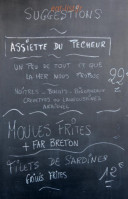 SUGGESTIONS
ASSIETTE DU PECHEUR
UN PEU DE TOUT CE QUE
LA MER NOUS PROPOSE
22€
HUÎTRES - BULOTS - BIGORNEAUX
CREVETTES OU LANGOUSTINES
ARAIGNÉE
MOULES FRITES
+ FAR BRETON
FILETS DE SARDINES
GRILLÉ FRITES
12€